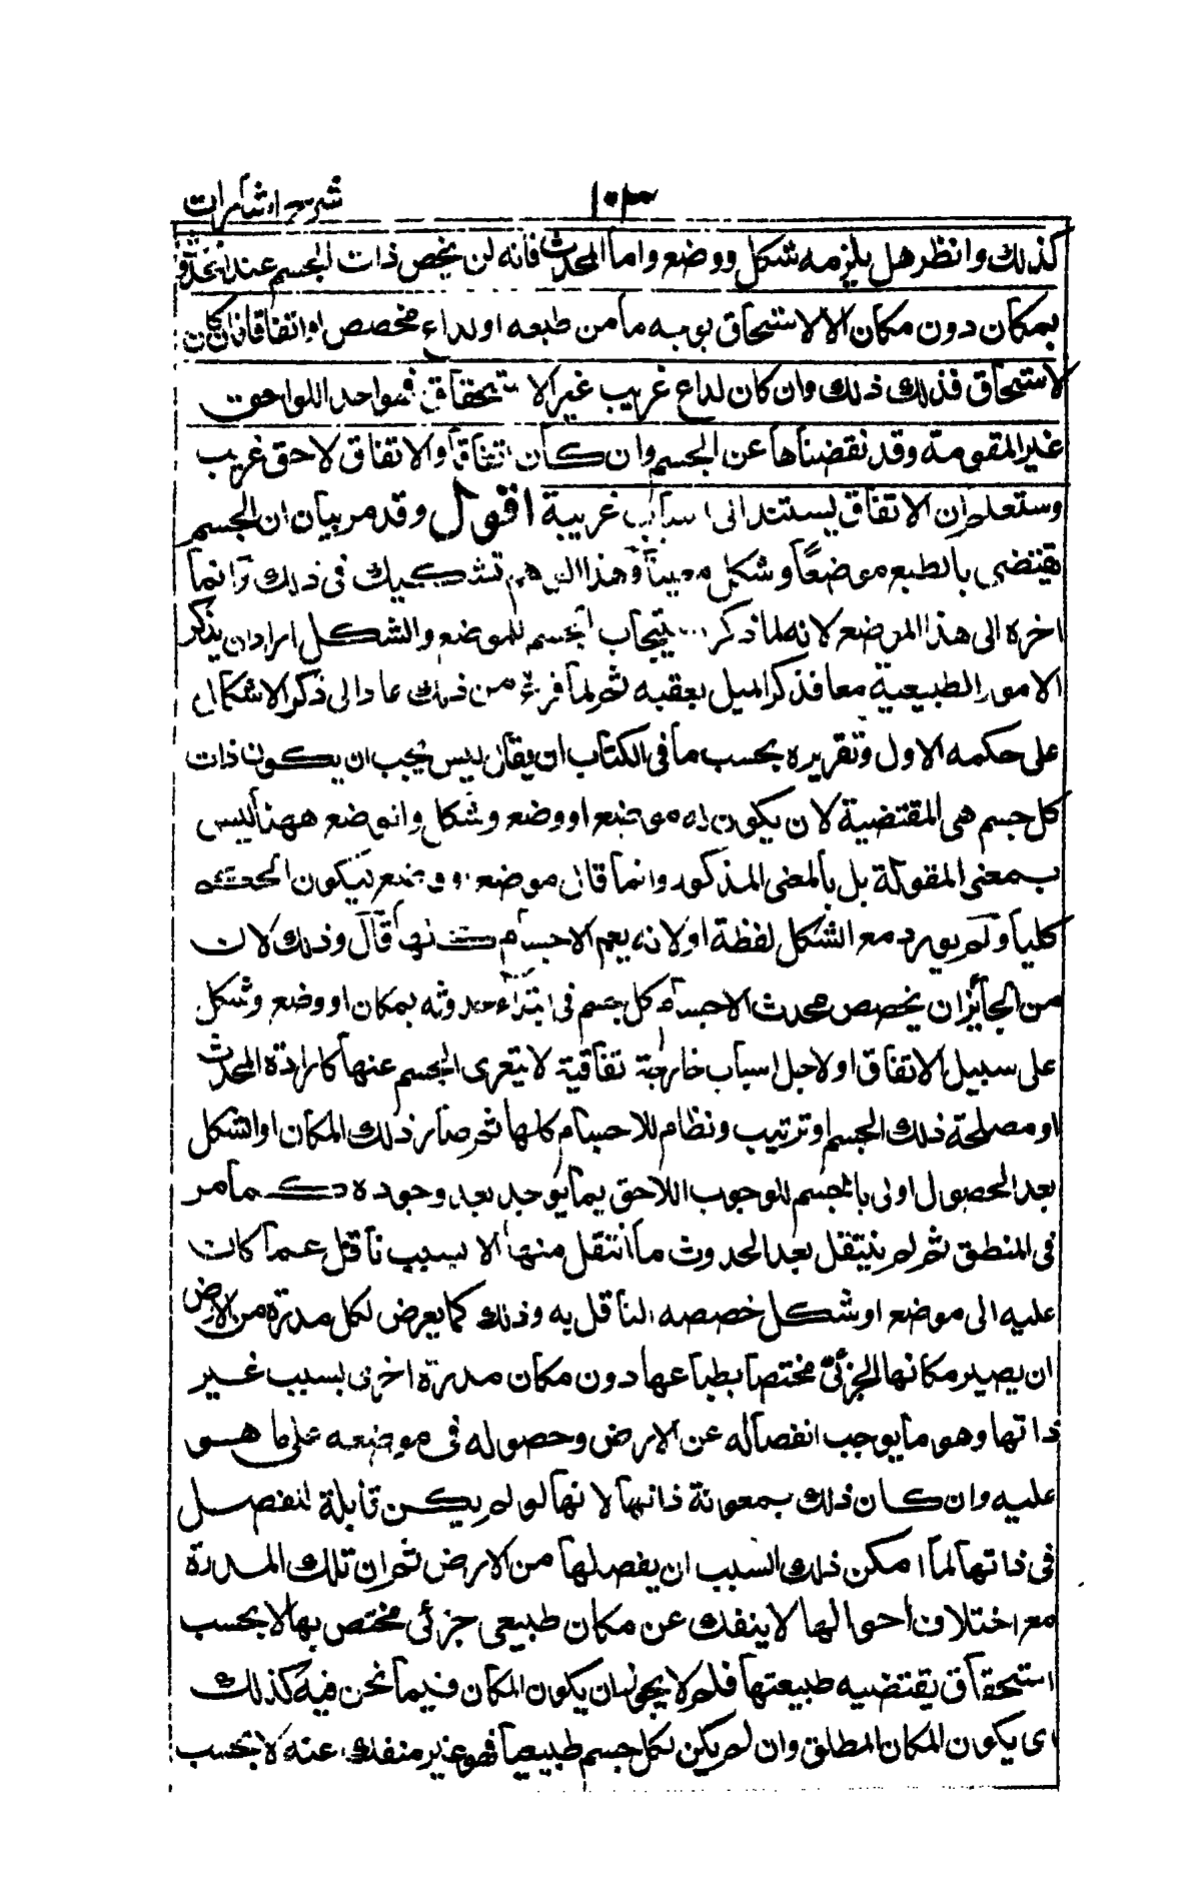 ١٠٣ شرح اشارات
كذلك وانظر هل يلزمه شكل ووضع واما المحدث فانه لن يخص ذات الجسم عند
بمكان دون مكان الا لاستحقاق بوجه ما من طبعه او لداع مخصص او اتفاقا فان كان
لاستحقاق فذلك ذلك وان كان لداع غريب غير الاستحقاق فهو احد اللواحق
غير المقومة وقد نقضناها عن الجسم وان كان اتفاقا والاتفاق لاحق غريب
وستعلم ان الاتفاق يستند الى اسباب غريبة اقول وقد مر بيان ان الجسم
يقتضى بالطبع موضعا وشكلا معينا وهذا الوهم تشكيك فى ذلك وانما
اخره الى هذا الموضع لانه لما ذكر الجسم للموضع والشكل اراد ان يذكر
الامور الطبيعية معا فذكر الميل بعقبه ثم لما فرغ من ذلك عاد الى ذكر الاشكال
على حكمه الاول وتقريره بحسب ما فى الكتاب ان يقال ليس يجب ان يكون ذات
كل جسم هى المقتضية لان يكون له موضع او وضع وشكل والوضع ههنا ليس
بمعنى المقولة بل بالمعنى المذكور وانما قال موضع او وضع ليكون الحكم
كليا ولم يورد مع الشكل لفظة او لانه يعم الاجسام قال وذلك لان
من الجائز ان يخصص محدث الاجسام كل جسم فى ابتداء حدوثه بمكان او وضع وشكل
على سبيل الاتفاق او لاجل اسباب خارجة تفاقية لا يتعرى الجسم عنها كارادة المحدث
او مصلحة ذلك الجسم او ترتيب ونظام للاجسام كلها ثم صار ذلك المكان او الشكل
بعد الحصول اولى بالجسم للوجوب اللاحق بما يوجد بعد وجوده كما مر
فى المنطق ثم لم ينتقل بعد الحدوث ما انتقل منها الا بسبب ناقل عما كانت
عليه الى موضع او شكل خصصه الناقل به وذلك كما يعرض لكل مدرة من الارض
ان يصير مكانها الجزئى مختصا بطباعها دون مكان مدرة اخرى بسبب غير
ذاتها وهو ما يوجب انفصاله عن الارض وحصوله فى موضعه على ما هو
عليه وان كان ذلك بمعونة ذاتها لانها لو لم يكن قابلة لنفصل
فى ذاتها لما امكن ذلك السبب ان يفصلها من الارض ثم ان تلك المدرة
مع اختلاف احوالها لا ينفك عن مكان طبيعى جزئى مختص بها لا بحسب
استحقاق يقتضيه طبيعتها فلم لا يجوز ان يكون المكان فيما نحن فيه كذلك
اى يكون المكان المطلق وان لم يكن لكل جسم طبيعيا فهو غير منفك عنه لا بحسب